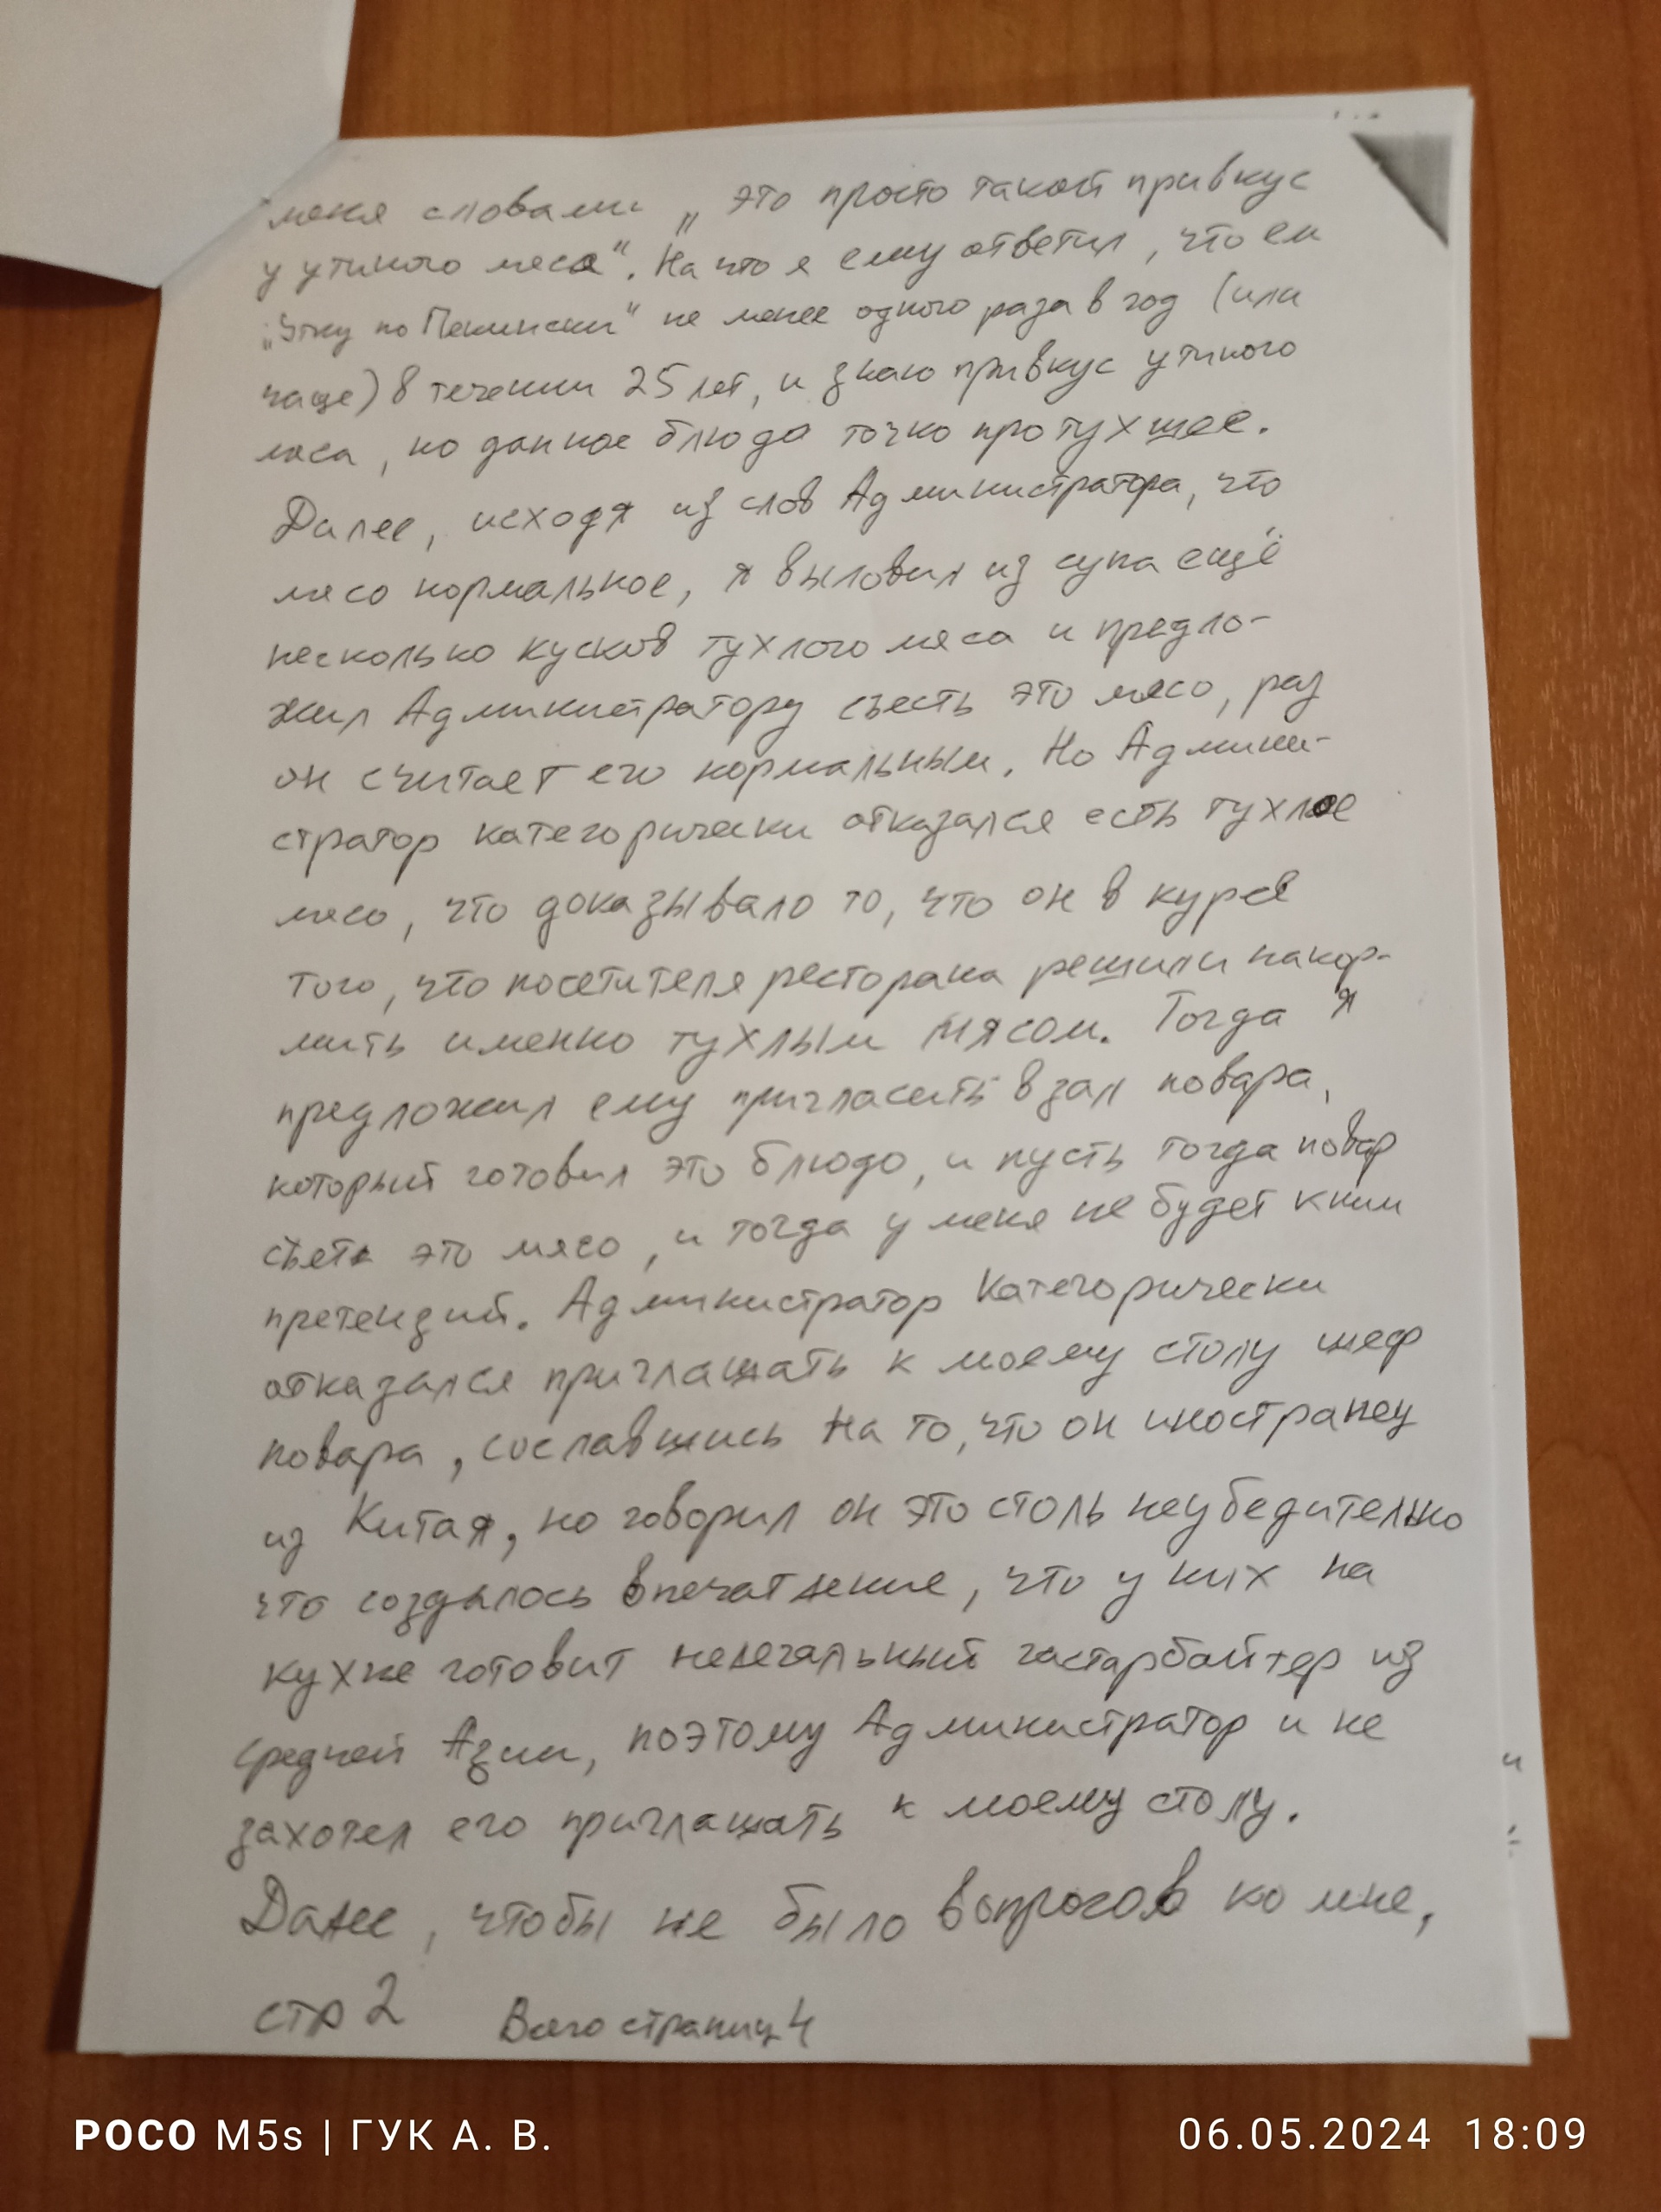 меня словами „это просто такой привкус
у утиного мяса“. На что я ему ответил, что ем
„Утку по Пекински“ не менее одного раза в год (или
чаще) в течении 25 лет, и знаю привкус утиного
мяса, но данное блюдо точно протухшее.
Далее, исходя из слов Администратора, что
мясо нормальное, я выловил из супа ещё
несколько кусков тухлого мяса и предло-
жил Администратору съесть это мясо, раз
он считает его нормальным. Но Админи-
стратор категорически отказался есть тухлое
мясо, что доказывало то, что он в курсе
того, что посетителя ресторана решили накор-
мить именно тухлым мясом. Тогда я
предложил ему пригласить в зал повара,
который готовил это блюдо, и пусть тогда повар
съест это мясо, и тогда у меня не будет к ним
претензий. Администратор Категорически
отказался приглашать к моему столу шеф
повара, сославшись на то, что он иностранец
из Китая, но говорил он это столь неубедительно
что создалось впечатление, что у них на
кухне готовит нелегальный гастарбайтер из
Средней Азии, поэтому Администратор и не
захотел его приглашать к моему столу.
Далее, чтобы не было вопросов ко мне,
стр 2 Всего страниц 4
POCO M5s | ГУК А. В.
06.05.2024 18:09